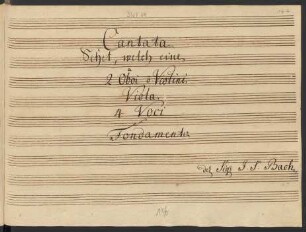 Cantata
Sehet, welch eine,
2 Oboi, 2 Violini
Viola,
4 Voci
Fondamenta
del Sigr J. S. Bach